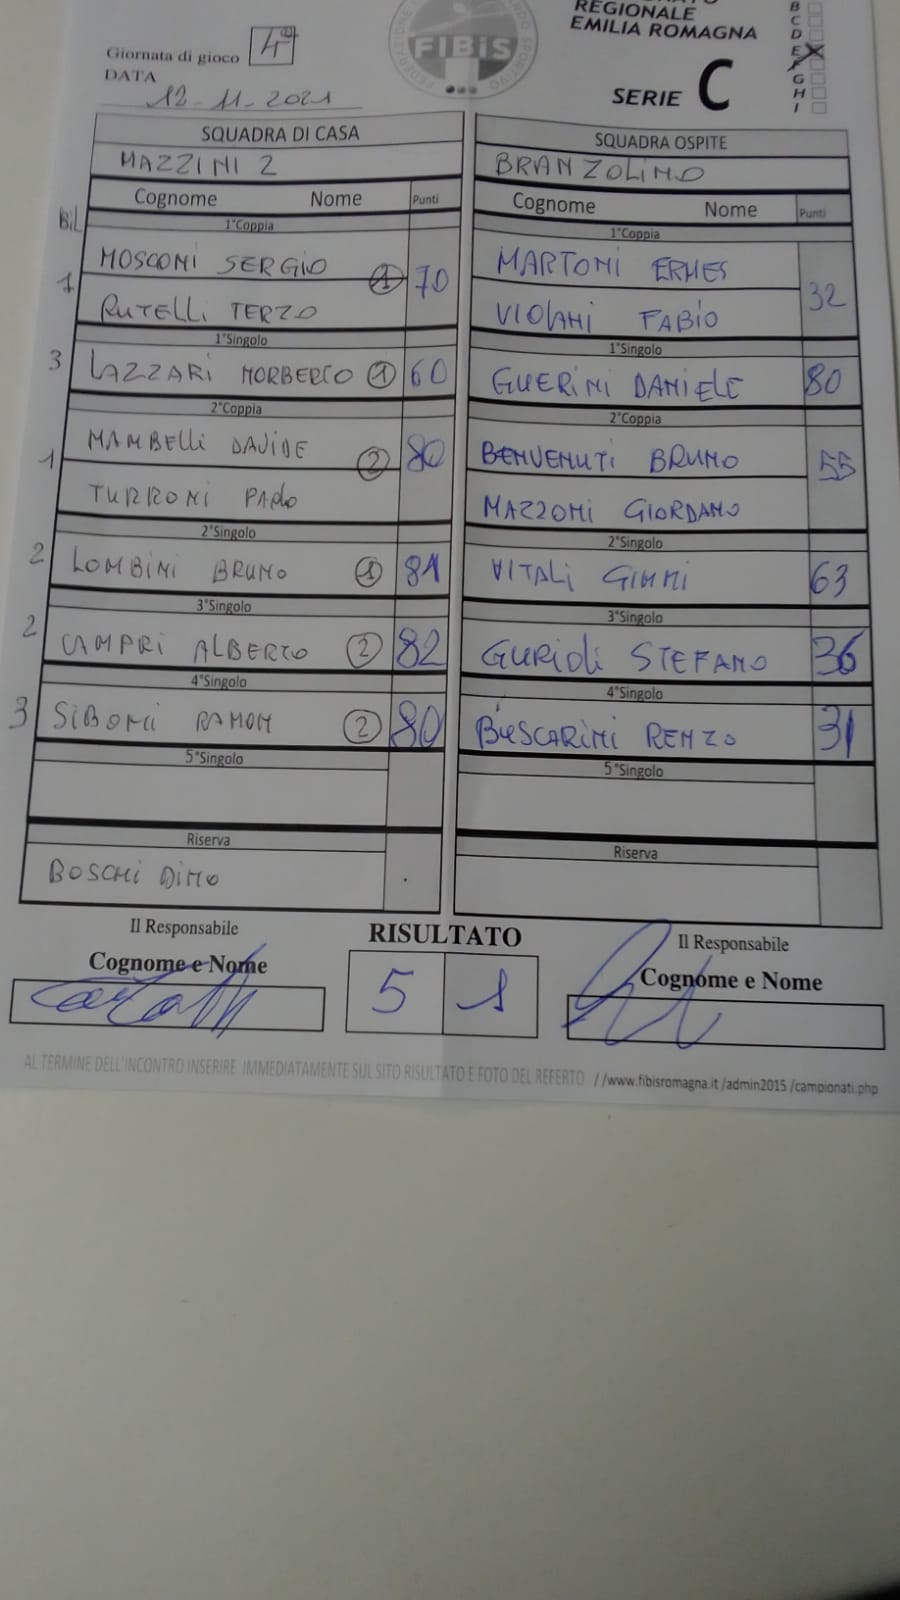 REGIONALE
EMILIA ROMAGNA
B
C
D
E
F
G
H
I
FIBiS
Giornata di gioco 4ª
DATA
12-11-2021
SERIE C
SQUADRA DI CASA
SQUADRA OSPITE
MAZZINI 2
BRANZOLINO
Cognome Nome Punti
Cognome Nome Punti
Bil
1°Coppia
1°Coppia
MOSCONI SERGIO
MARTONI ERMES
1 1 70
32
RUTELLI TERZO
VIOLANI FABIO
1°Singolo
1°Singolo
3 LAZZARI NORBERTO 1 60
GUERINI DANIELE 80
2°Coppia
2°Coppia
MAMBELLI DAVIDE
BENVENUTI BRUNO
1 2 80
55
TURRONI PAOLO
MAZZONI GIORDANO
2°Singolo
2°Singolo
2 LOMBINI BRUNO 1 81
VITALI GIMMI 63
3°Singolo
3°Singolo
2 CAMPRI ALBERTO 2 82
GURIOLI STEFANO 36
4°Singolo
4°Singolo
3 SIBONI RAMON 2 80
BUSCARINI RENZO 31
5°Singolo
5°Singolo
Riserva
Riserva
BOSCHI DINO
Il Responsabile
RISULTATO
Il Responsabile
Cognome e Nome
Cognome e Nome
5 1
AL TERMINE DELL'INCONTRO INSERIRE IMMEDIATAMENTE SUL SITO RISULTATO E FOTO DEL REFERTO //www.fibisromagna.it /admin2015 /campionati.php